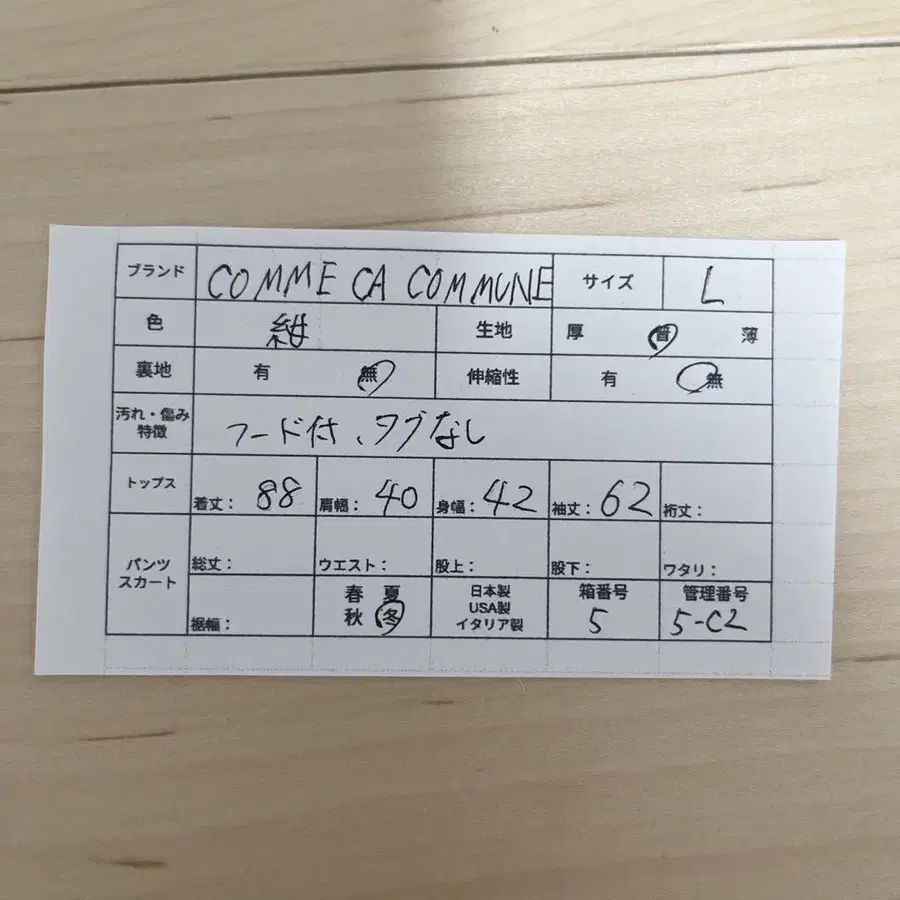 ブランド COMME CA COMMUNE サイズ L
色 紺 生地 厚 普 薄
裏地 有 無 伸縮性 有 無
汚れ・傷み
特徴 フード付、タグなし
トップス 着丈: 88 肩幅: 40 身幅: 42 袖丈: 62 裄丈:
パンツ
スカート 総丈: ウエスト: 股上: 股下: ワタリ:
裾幅: 春 夏 日本製 箱番号 管理番号
秋 冬 USA製 5 5-C2
イタリア製